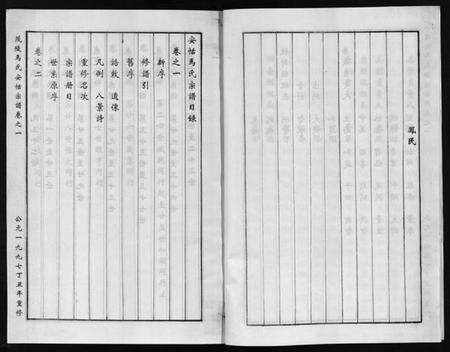 鳳民
安怙馬氏宗譜目錄
卷之一
新序
修譜引
舊序
誥敕 遺像
凡例 八景詩
重修名次
宗譜冊目
世系原序
卷之二
茂陵馬氏安怙宗譜卷之一
公元一九九七丁丑年重修